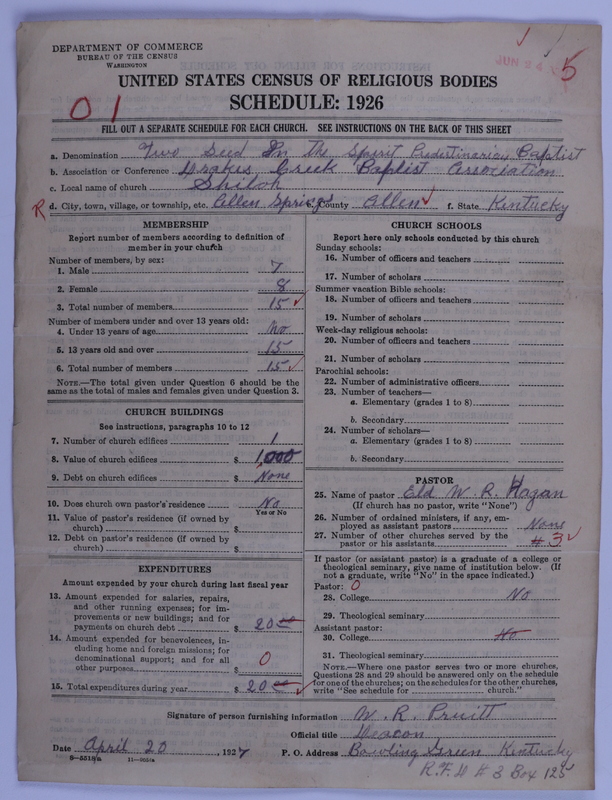 DEPARTMENT OF COMMERCE
BUREAU OF THE CENSUS
WASHINGTON
JUN 24
5
UNITED STATES CENSUS OF RELIGIOUS BODIES
SCHEDULE: 1926
01
FILL OUT A SEPARATE SCHEDULE FOR EACH CHURCH. SEE INSTRUCTIONS ON THE BACK OF THIS SHEET
a. Denomination Two Seed In the Spirit Predestinarian Baptist
b. Association or Conference Drakes Creek Baptist Association
c. Local name of church Shiloh
R d. City, town, village, or township, etc. Allen Springs e. County Allen f. State Kentucky
MEMBERSHIP
Report number of members according to definition of
member in your church
Number of members, by sex:
1. Male 7
2. Female 8
3. Total number of members 15
Number of members under and over 13 years old:
4. Under 13 years of age no
5. 13 years old and over 15
6. Total number of members 15
NOTE.—The total given under Question 6 should be the
same as the total of males and females given under Question 3.
CHURCH BUILDINGS
See instructions, paragraphs 10 to 12
7. Number of church edifices 1
8. Value of church edifices $ 1,000
9. Debt on church edifices $ None
10. Does church own pastor's residence No
Yes or No
11. Value of pastor's residence (if owned by
church) $
12. Debt on pastor's residence (if owned by
church) $
EXPENDITURES
Amount expended by your church during last fiscal year
13. Amount expended for salaries, repairs,
and other running expenses; for im-
provements or new buildings; and for
payments on church debt $ 20
14. Amount expended for benevolences, in-
cluding home and foreign missions; for
denominational support; and for all
other purposes $ 0
15. Total expenditures during year $ 20
CHURCH SCHOOLS
Report here only schools conducted by this church
Sunday schools:
16. Number of officers and teachers
17. Number of scholars
Summer vacation Bible schools:
18. Number of officers and teachers
19. Number of scholars
Week-day religious schools:
20. Number of officers and teachers
21. Number of scholars
Parochial schools:
22. Number of administrative officers
23. Number of teachers—
a. Elementary (grades 1 to 8)
b. Secondary
24. Number of scholars—
a. Elementary (grades 1 to 8)
b. Secondary
PASTOR
25. Name of pastor Eld W. R. Hagan
(If church has no pastor, write "None")
26. Number of ordained ministers, if any, em-
ployed as assistant pastors None
27. Number of other churches served by the
pastor or his assistants 3
If pastor (or assistant pastor) is a graduate of a college or
theological seminary, give name of institution below. (If
not a graduate, write "No" in the space indicated.)
Pastor: 0
28. College No
29. Theological seminary
Assistant pastor:
30. College No
31. Theological seminary
NOTE.—Where one pastor serves two or more churches,
Questions 28 and 29 should be answered only on the schedule
for one of the churches; on the schedules for the other churches,
write "See schedule for church."
Signature of person furnishing information W. R. Pruitt
Official title Deacon
Date April 20, 1927 P. O. Address Bowling Green Kentucky
R.F.D # 3 Box 125